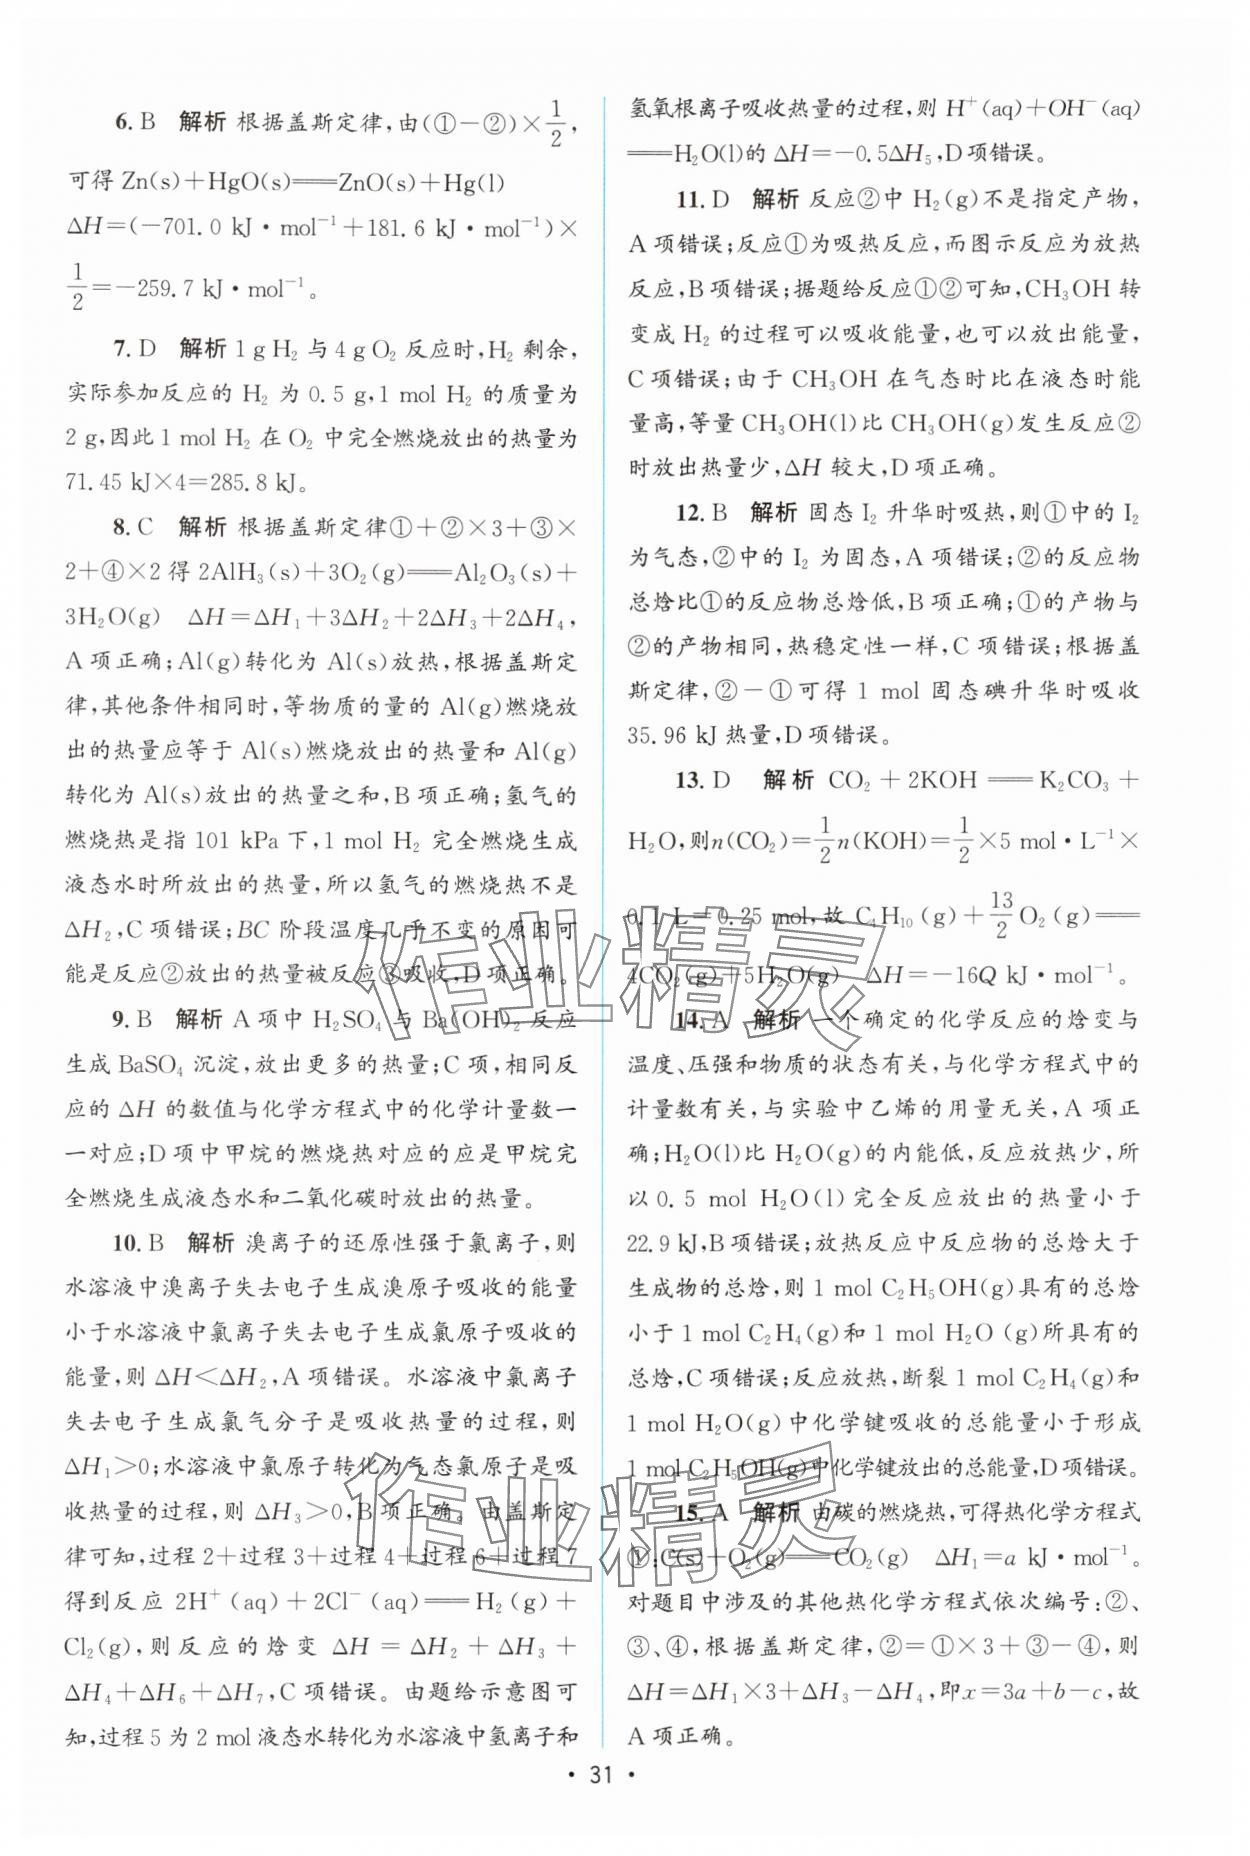 6. B 解析 根据盖斯定律,由(①-②)×1/2,
可得 Zn(s)+HgO(s)══ZnO(s)+Hg(l)
ΔH=(-701.0 kJ·mol⁻¹+181.6 kJ·mol⁻¹)×
1/2=-259.7 kJ·mol⁻¹。
7. D 解析 1 g H₂ 与 4 g O₂ 反应时,H₂ 剩余,
实际参加反应的 H₂ 为 0.5 g,1 mol H₂ 的质量为
2 g,因此 1 mol H₂ 在 O₂ 中完全燃烧放出的热量为
71.45 kJ×4=285.8 kJ。
8. C 解析 根据盖斯定律①+②×3+③×
2+④×2 得 2AlH₃(s)+3O₂(g)══Al₂O₃(s)+
3H₂O(g) ΔH=ΔH₁+3ΔH₂+2ΔH₃+2ΔH₄,
A 项正确;Al(g)转化为 Al(s)放热,根据盖斯定
律,其他条件相同时,等物质的量的 Al(g)燃烧放
出的热量应等于 Al(s)燃烧放出的热量和 Al(g)
转化为 Al(s)放出的热量之和,B 项正确;氢气的
燃烧热是指 101 kPa 下,1 mol H₂ 完全燃烧生成
液态水时所放出的热量,所以氢气的燃烧热不是
ΔH₂,C 项错误;BC 阶段温度几乎不变的原因可
能是反应②放出的热量被反应③吸收,D 项正确。
9. B 解析 A 项中 H₂SO₄ 与 Ba(OH)₂ 反应
生成 BaSO₄ 沉淀,放出更多的热量;C 项,相同反
应的 ΔH 的数值与化学方程式中的化学计量数一
一对应;D 项中甲烷的燃烧热对应的应是甲烷完
全燃烧生成液态水和二氧化碳时放出的热量。
10. B 解析 溴离子的还原性强于氯离子,则
水溶液中溴离子失去电子生成溴原子吸收的能量
小于水溶液中氯离子失去电子生成氯原子吸收的
能量,则 ΔH<ΔH₂,A 项错误。水溶液中氯离子
失去电子生成氯气分子是吸收热量的过程,则
ΔH₁>0;水溶液中氯原子转化为气态氯原子是吸
收热量的过程,则 ΔH₃>0,B 项正确。由盖斯定
律可知,过程 2+过程 3+过程 4+过程 6+过程 7
得到反应 2H⁺(aq)+2Cl⁻(aq)══H₂(g)+
Cl₂(g),则反应的焓变 ΔH=ΔH₂+ΔH₃+
ΔH₄+ΔH₆+ΔH₇,C 项错误。由题给示意图可
知,过程 5 为 2 mol 液态水转化为水溶液中氢离子和
氢氧根离子吸收热量的过程,则 H⁺(aq)+OH⁻(aq)
══H₂O(l)的 ΔH=-0.5ΔH₅,D 项错误。
11. D 解析 反应②中 H₂(g)不是指定产物,
A 项错误;反应①为吸热反应,而图示反应为放热
反应,B 项错误;据题给反应①②可知,CH₃OH 转
变成 H₂ 的过程可以吸收能量,也可以放出能量,
C 项错误;由于 CH₃OH 在气态时比在液态时能
量高,等量 CH₃OH(l)比 CH₃OH(g)发生反应②
时放出热量少,ΔH 较大,D 项正确。
12. B 解析 固态 I₂ 升华时吸热,则①中的 I₂
为气态,②中的 I₂ 为固态,A 项错误;②的反应物
总焓比①的反应物总焓低,B 项正确;①的产物与
②的产物相同,热稳定性一样,C 项错误;根据盖
斯定律,②-①可得 1 mol 固态碘升华时吸收
35.96 kJ 热量,D 项错误。
13. D 解析 CO₂+2KOH══K₂CO₃+
H₂O,则n(CO₂)=1/2n(KOH)=1/2×5 mol·L⁻¹×
0.1 L=0.25 mol,故 C₄H₁₀(g)+13/2O₂(g)══
4CO₂(g)+5H₂O(g) ΔH=-16Q kJ·mol⁻¹。
14. A 解析 一个确定的化学反应的焓变与
温度、压强和物质的状态有关,与化学方程式中的
计量数有关,与实验中乙烯的用量无关,A 项正
确;H₂O(l)比 H₂O(g)的内能低,反应放热少,所
以 0.5 mol H₂O(l)完全反应放出的热量小于
22.9 kJ,B 项错误;放热反应中反应物的总焓大于
生成物的总焓,则 1 mol C₂H₅OH(g)具有的总焓
小于 1 mol C₂H₄(g)和 1 mol H₂O (g)所具有的
总焓,C 项错误;反应放热,断裂 1 mol C₂H₄(g)和
1 mol H₂O(g)中化学键吸收的总能量小于形成
1 mol C₂H₅OH(g)中化学键放出的总能量,D 项错误。
15. A 解析 由碳的燃烧热,可得热化学方程式
①:C(s)+O₂(g)══CO₂(g) ΔH₁=a kJ·mol⁻¹。
对题目中涉及的其他热化学方程式依次编号:②、
③、④,根据盖斯定律,②=①×3+③-④,则
ΔH=ΔH₁×3+ΔH₃-ΔH₄,即x=3a+b-c,故
A 项正确。
作业精灵
作业精灵
·31·